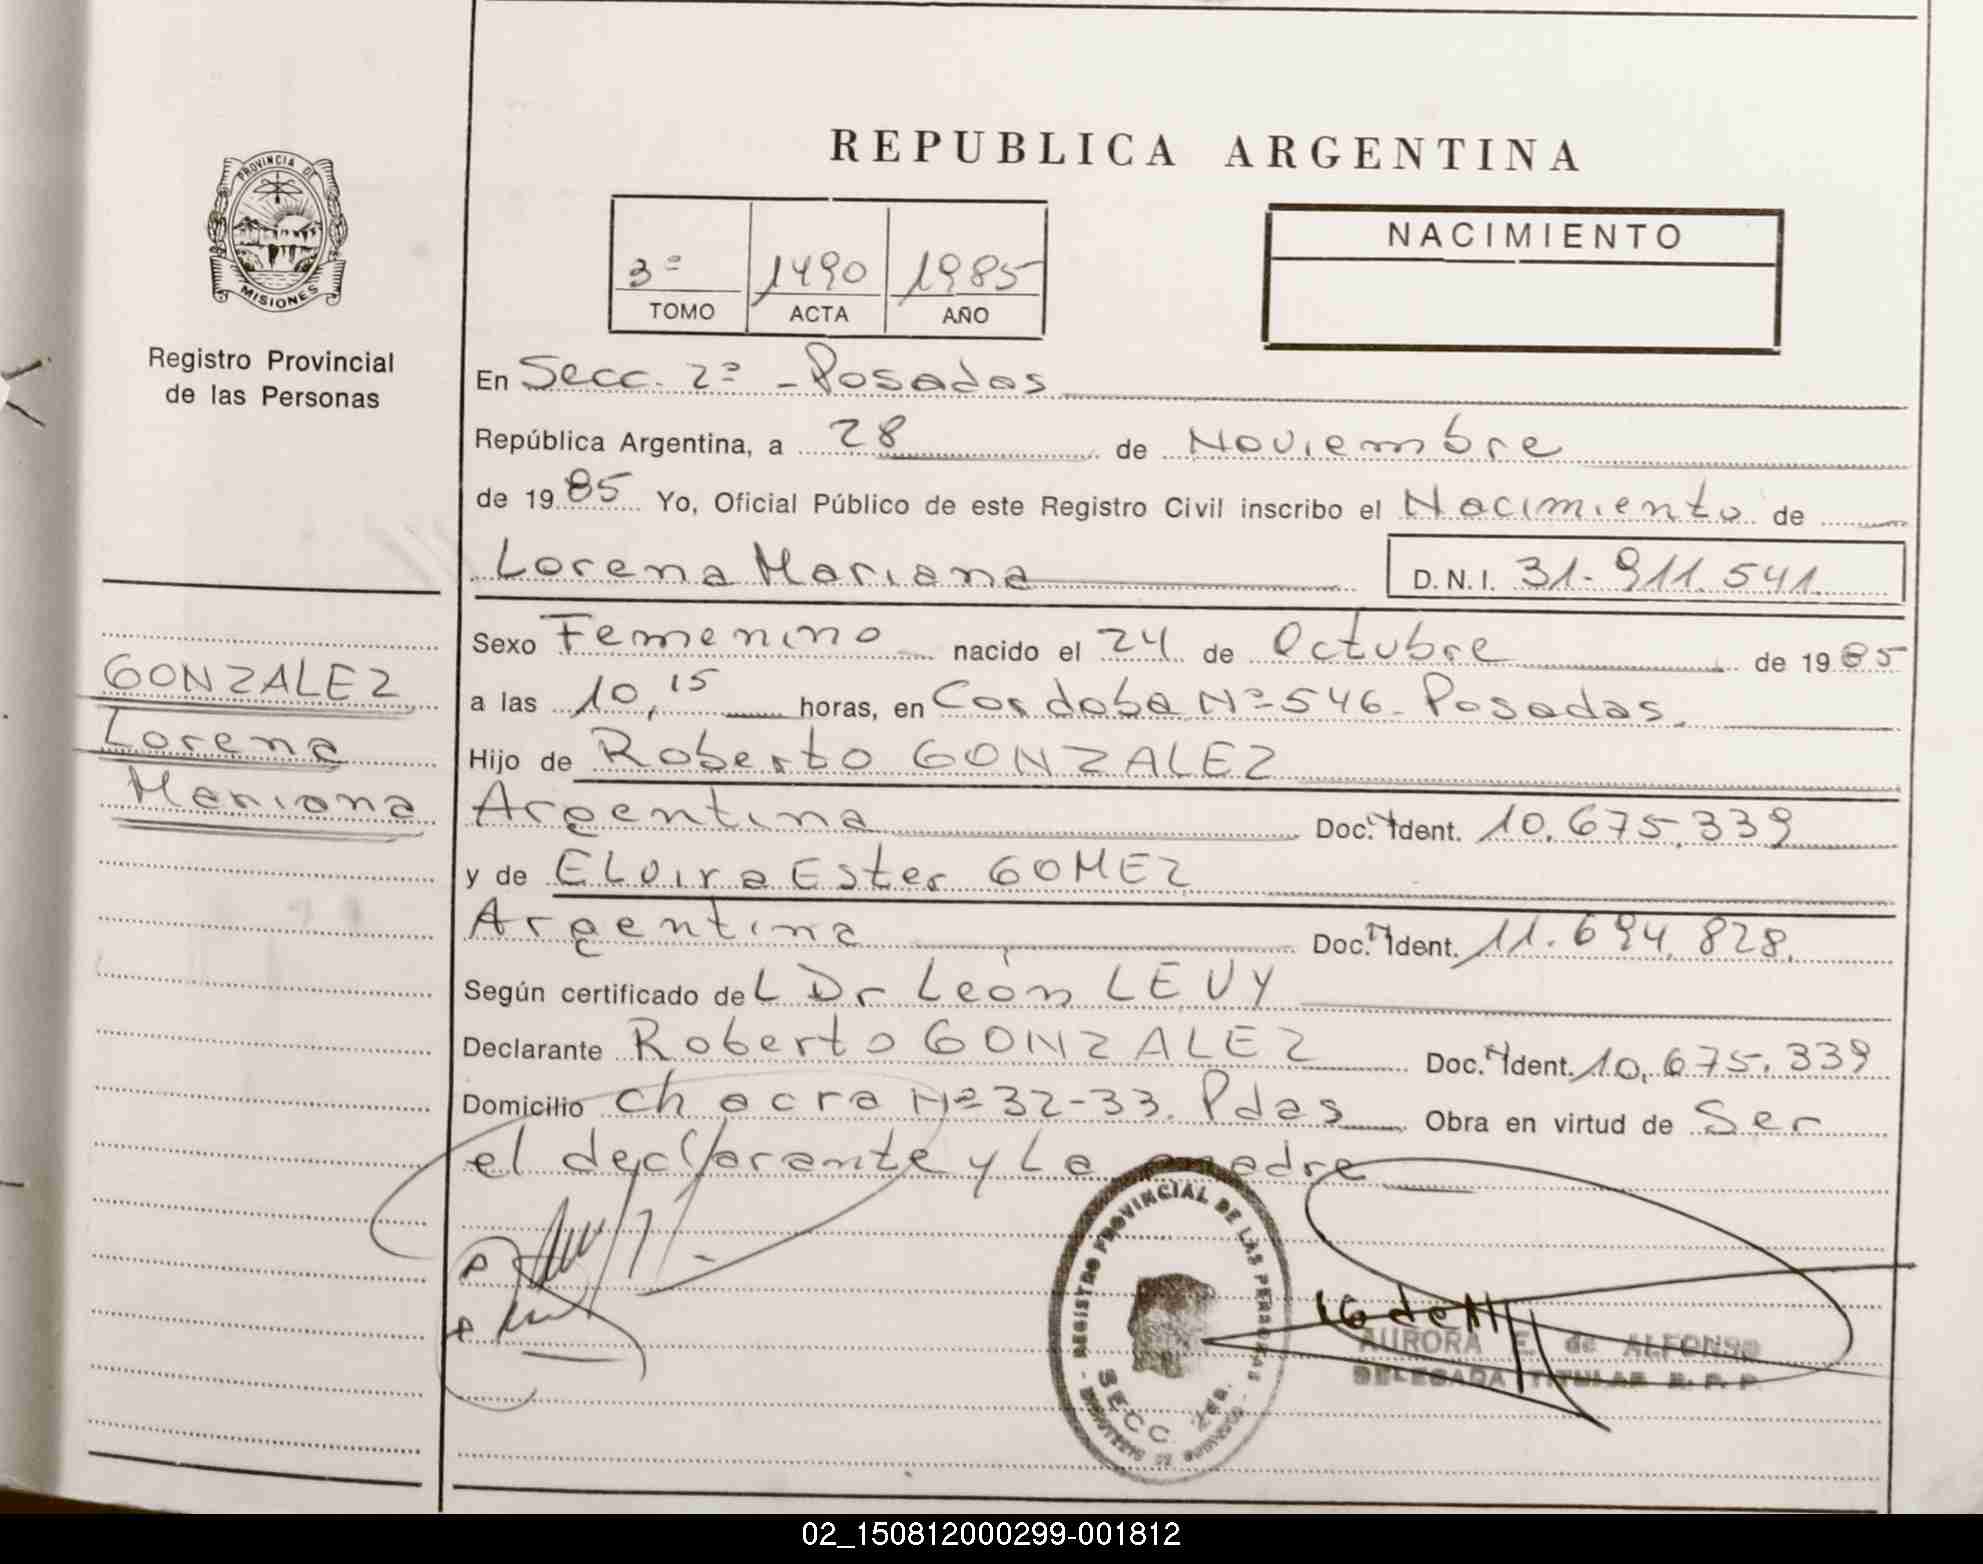 REPUBLICA ARGENTINA
PROVINCIA DE
MISIONES
Registro Provincial
de las Personas
GONZALEZ
Lorena
Mariana
3º 1490 1985
TOMO ACTA AÑO
NACIMIENTO
En Secc. 2ª - Posadas
República Argentina, a 28 de Noviembre
de 1985 Yo, Oficial Público de este Registro Civil inscribo el Nacimiento de
Lorena Mariana D.N.I. 31.911.541.
Sexo Femenino nacido el 24 de Octubre de 1985
a las 10,15 horas, en Cordoba Nº 546 - Posadas.
Hijo de Roberto GONZALEZ
Argentina Doc. Ident. 10.675.339
y de ELvira Ester GOMEZ
Argentina Doc. Ident. 11.694.828.
Según certificado deL Dr León LEVY
Declarante Roberto GONZALEZ Doc. Ident. 10.675.339
Domicilio chacra Nº 32-33. Pdas Obra en virtud de Ser
el declarante y La madre
REGISTRO PROVINCIAL DE LAS PERSONAS
SECC. 2da.
AURORA E. de ALFONSO
DELEGADA TITULAR R. P. P.
02_150812000299-001812